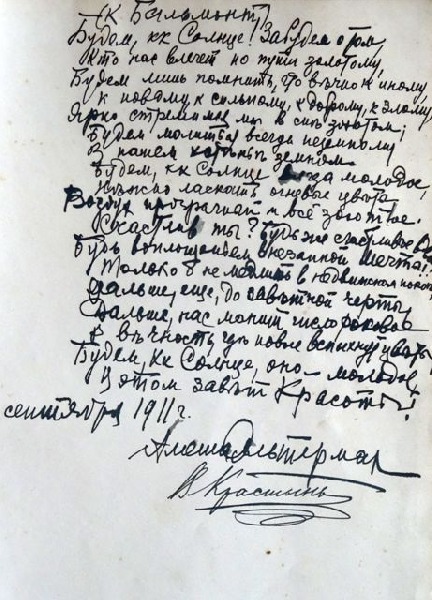 (К Бальмонт)
Будем, кк Солнце! Забудем о том,
Кто нас влечет по пути золотому,
Будем лишь помнить, что вѣчно к иному
к новому, к сильному, к доброму, к злому,
Ярко стремимся мы в снѣ золотом;
Будем молиться всегда неземному
В нашем хотѣньи земном
Будем, кк Солнце молодое,
Нѣжно ласкать огневые цвѣты,
Воздух прозрачный и все золотое.
Счастлив ты? Будь же счастливѣе
Будь воплощеньем внезапной мечты!
Только не медлить в недвижном покоѣ
Дальше, еще, до завѣтной черты,
Дальше, нас манит число роковое
В вѣчность гдѣ новые вспыхнут цвѣты
Будем, кк Солнце, оно — молодое,
В этом завѣт Красоты!
сентября 1911 г.